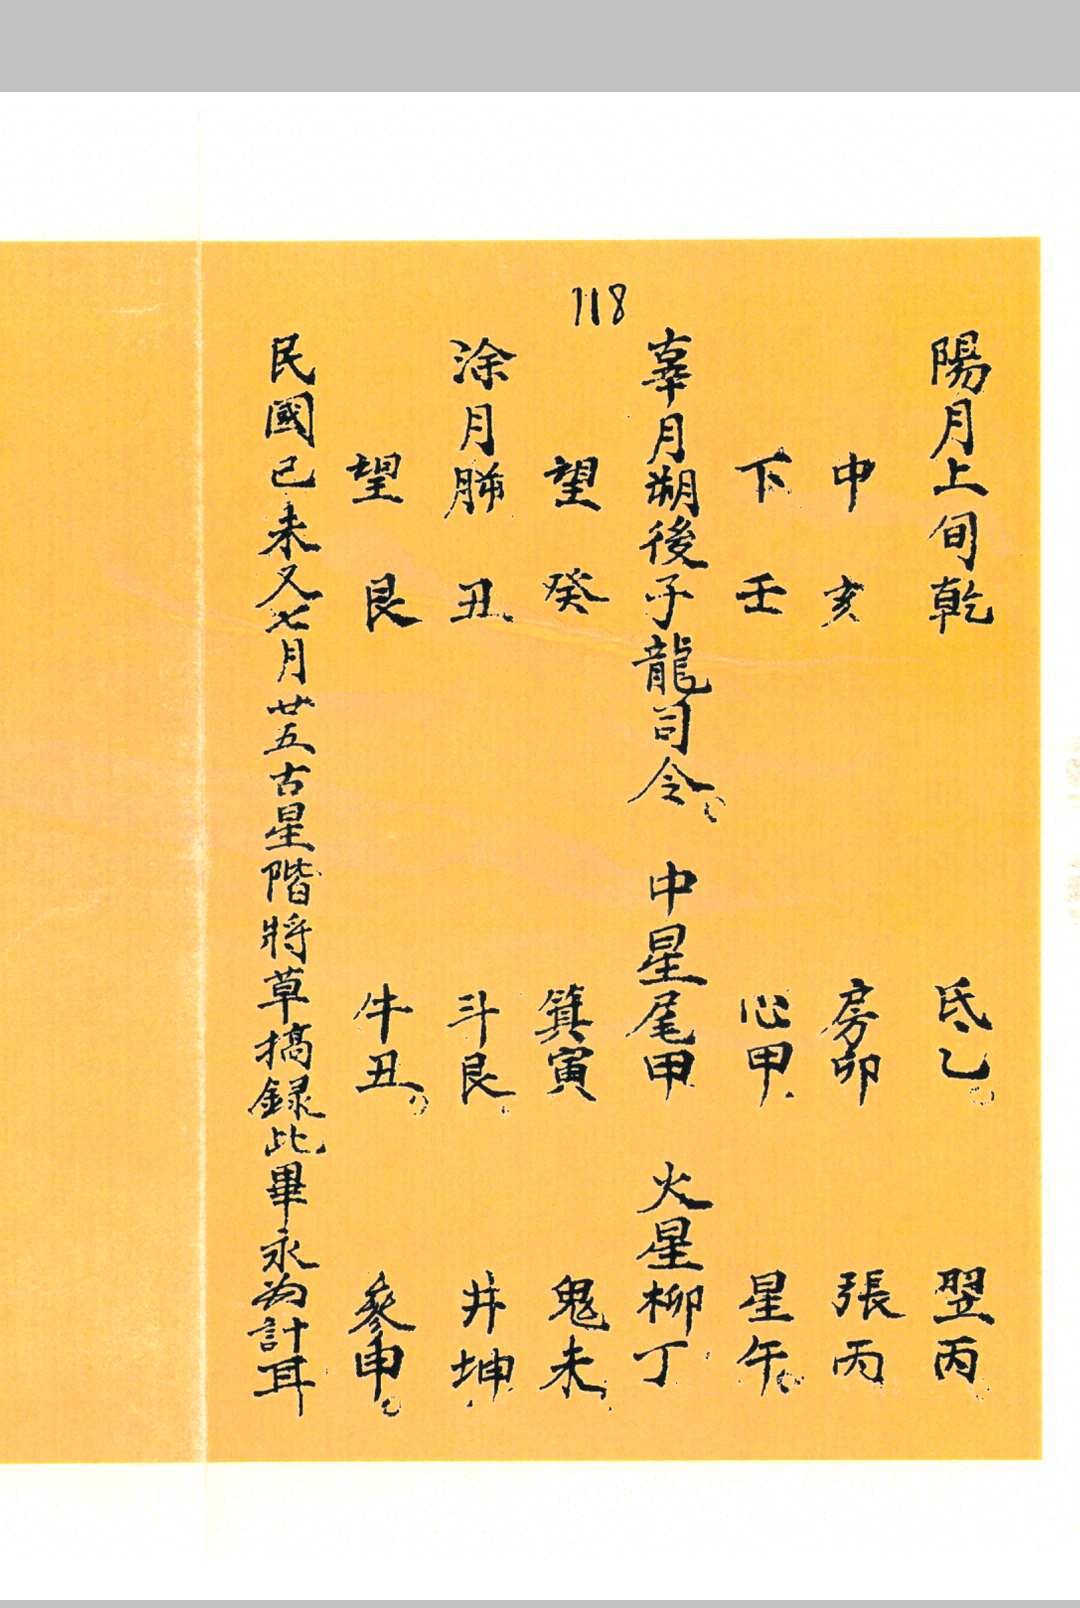 118
陽月上旬乾 氐乙 翌丙
中亥 房卯 張丙
下壬 心甲 星午
辜月朔後子龍司令 中星尾甲 火星柳丁
望癸 箕寅 鬼未
涂月 丑 斗艮 井坤
望艮 牛丑 參申
民國己未又七月廿五古星階將草搞録此畢永为計耳